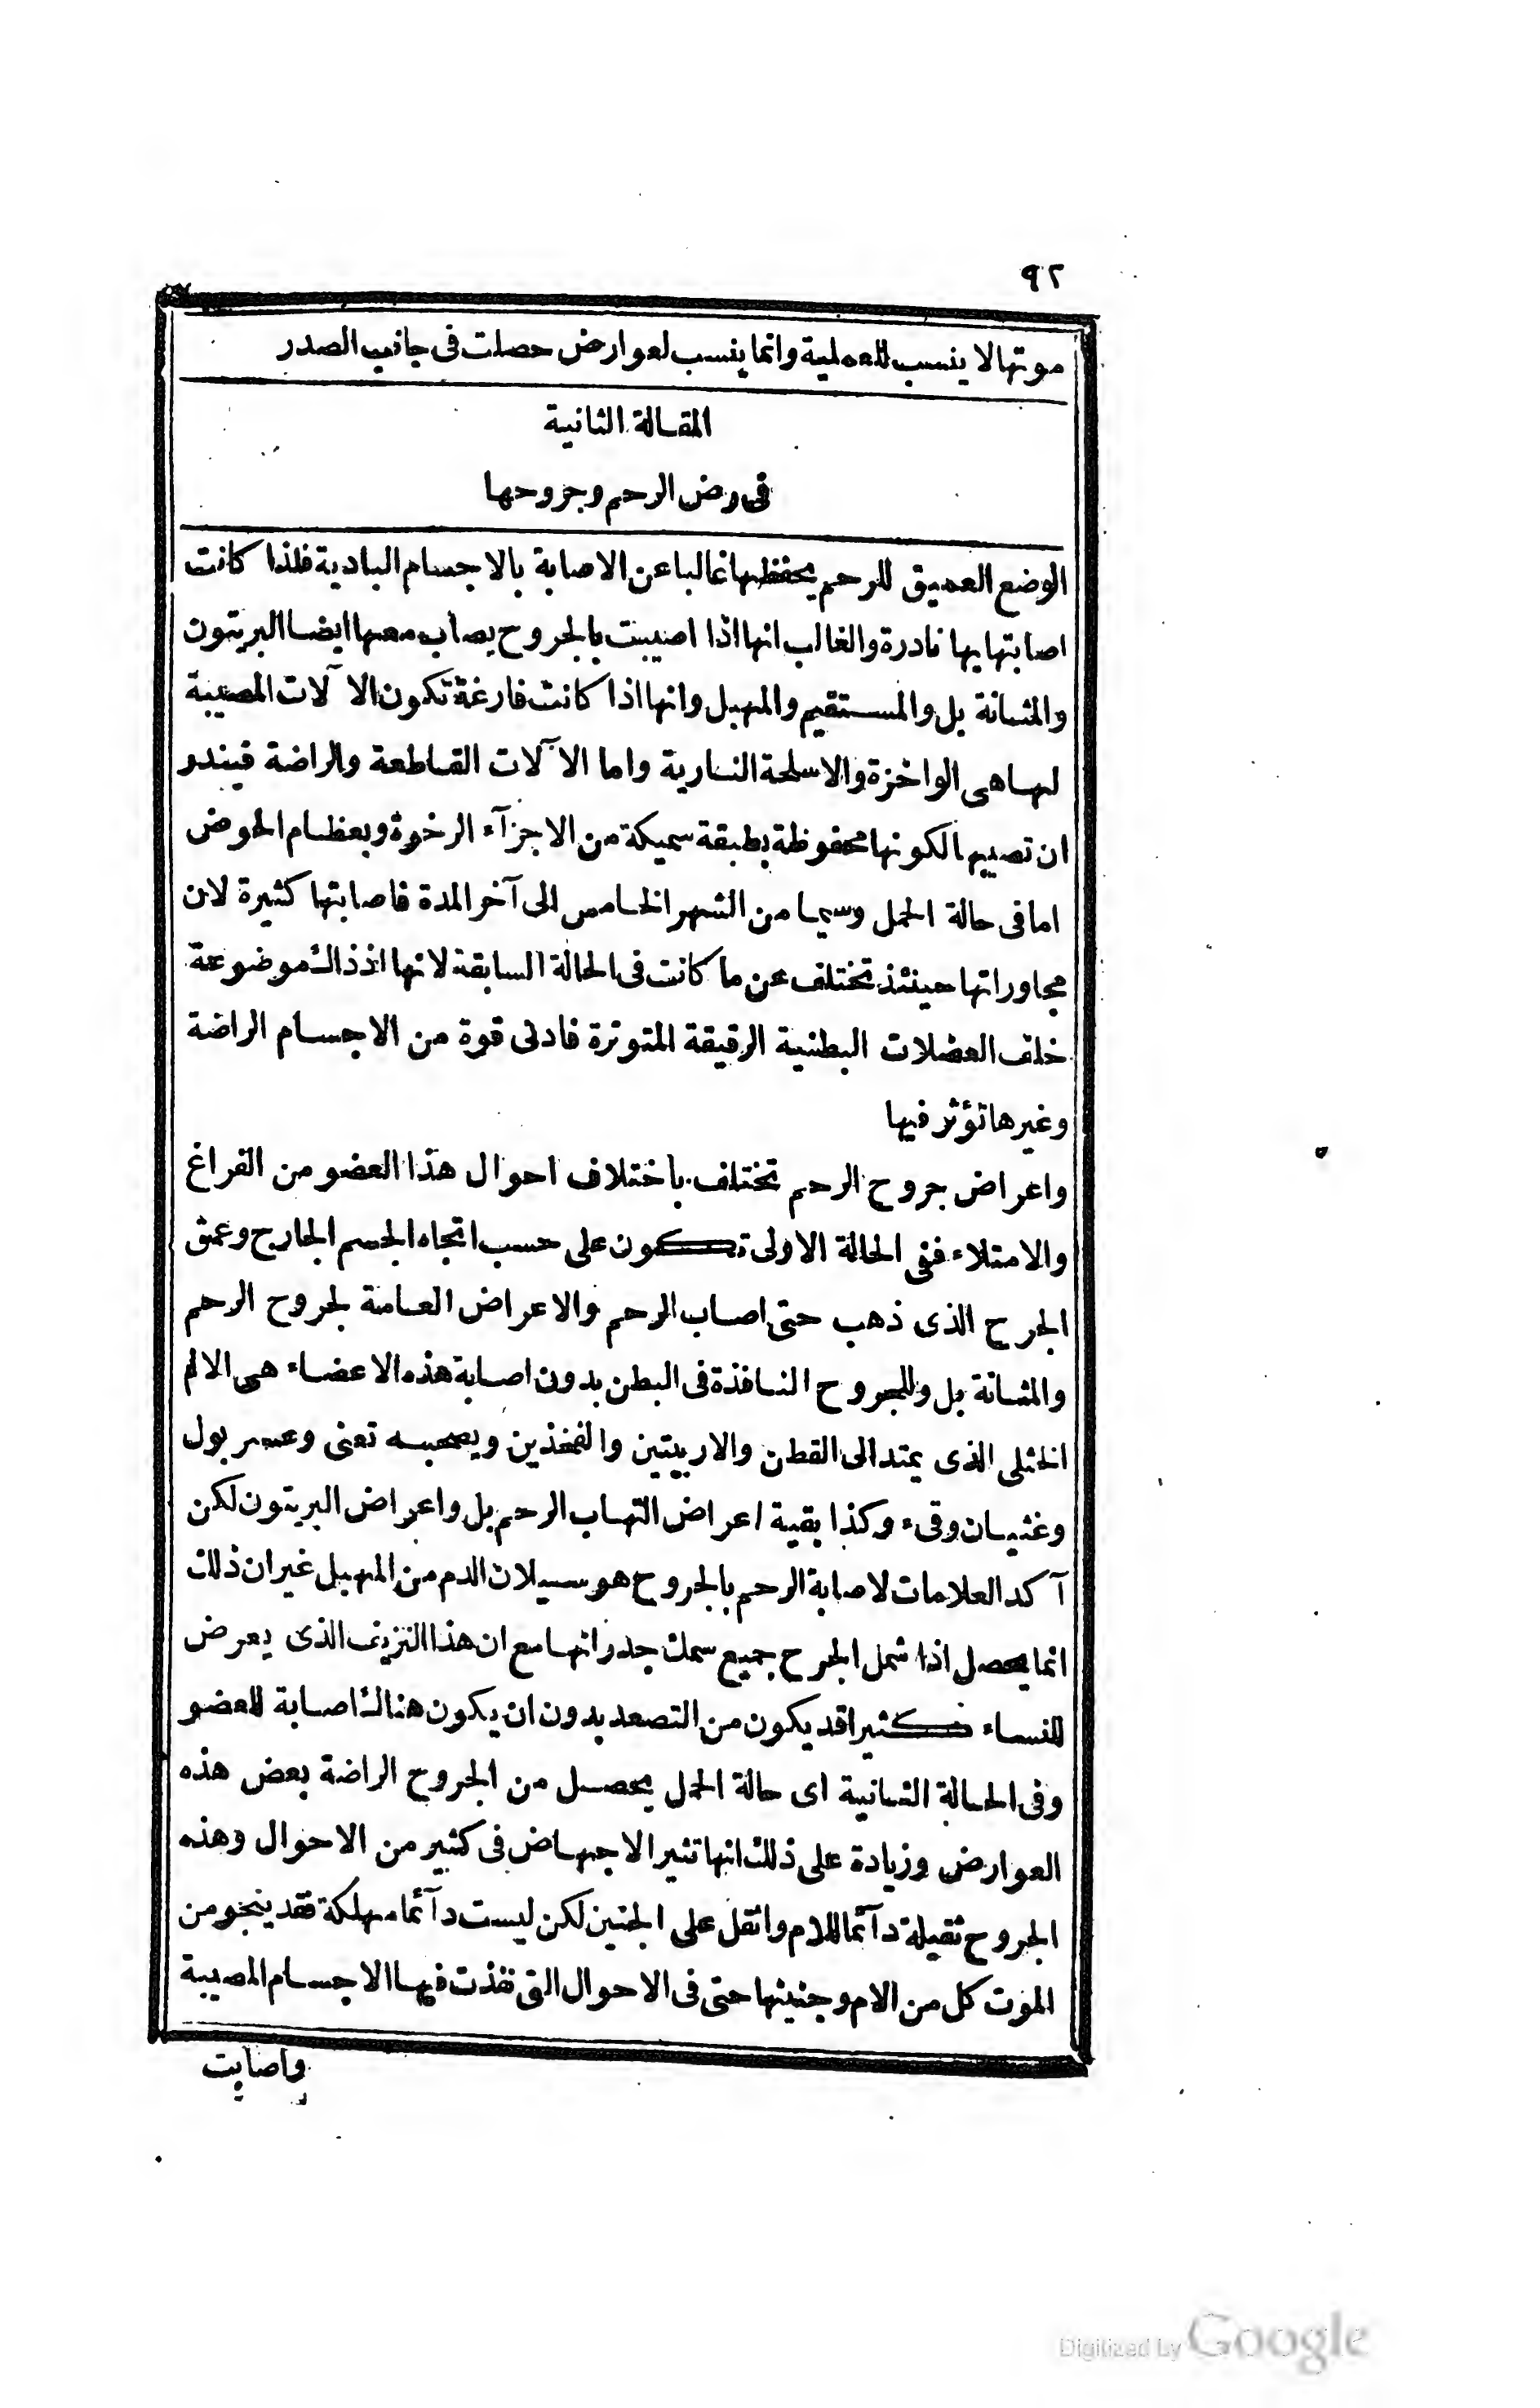 ٩٢
موتها لا ينسب للعملية وانما ينسب لعوارض حصلت فى جانب الصدر
المقالة الثانية
فى رض الرحم وجروحها
الوضع العميق للرحم يحفظها غالبا عن الاصابة بالاجسام البادية فلذا كانت
اصابتها بها نادرة والغالب انها اذا اصيبت بالجروح يصاب معها ايضا البريتون
والمثانة بل والمستقيم والمهبل وانها اذا كانت فارغة تكون الآلات المصيبة
لها هى الواخزة والاسلحة النارية واما الآلات القاطعة والراضة فيندر
ان تصيبها لكونها محفوظة بطبقة سميكة من الاجزآء الرخوة وبعظام الحوض
اما فى حالة الحمل وسيما من الشهر الخامس الى آخر المدة فاصابتها كثيرة لان
مجاوراتها حينئذ تختلف عن ما كانت فى الحالة السابقة لانها اذ ذاك موضوعة
خلف العضلات البطنية الرقيقة المتوترة فادنى قوة من الاجسام الراضة
وغيرها تؤثر فيها
واعراض جروح الرحم تختلف باختلاف احوال هذا العضو من الفراغ
والامتلاء ففى الحالة الاولى تكون على حسب اتجاه الجسم الجارح وعمق
الجرح الذى ذهب حتى اصاب الرحم والاعراض العامة لجروح الرحم
والمثانة بل وللجروح النافذة فى البطن بدون اصابة هذه الاعضاء هى الالم
الخثلى الذى يمتد الى القطن والاربيتين والفخذين ويصحبه تعنى وعسر بول
وغثيان وقىء وكذا بقية اعراض التهاب الرحم بل واعراض البريتون لكن
آكد العلامات لاصابة الرحم بالجروح هو سيلان الدم من المهبل غير ان ذلك
انما يحصل اذا شمل الجرح جميع سمك جدرانها مع ان هذا النزيف الذى يعرض
للنساء كثيرا قد يكون من التصعد بدون ان يكون هناك اصابة للعضو
وفى الحالة الثانية اى حالة الحمل يحصل من الجروح الراضة بعض هذه
العوارض وزيادة على ذلك انها تثير الاجهاض فى كثير من الاحوال وهذه
الجروح ثقيلة دآئما للام واثقل على الجنين لكن ليست دآئما مهلكة فقد ينجو من
الموت كل من الام وجنينها حتى فى الاحوال التى نفذت فيها الاجسام المصيبة
واصابت
Digitized by Google